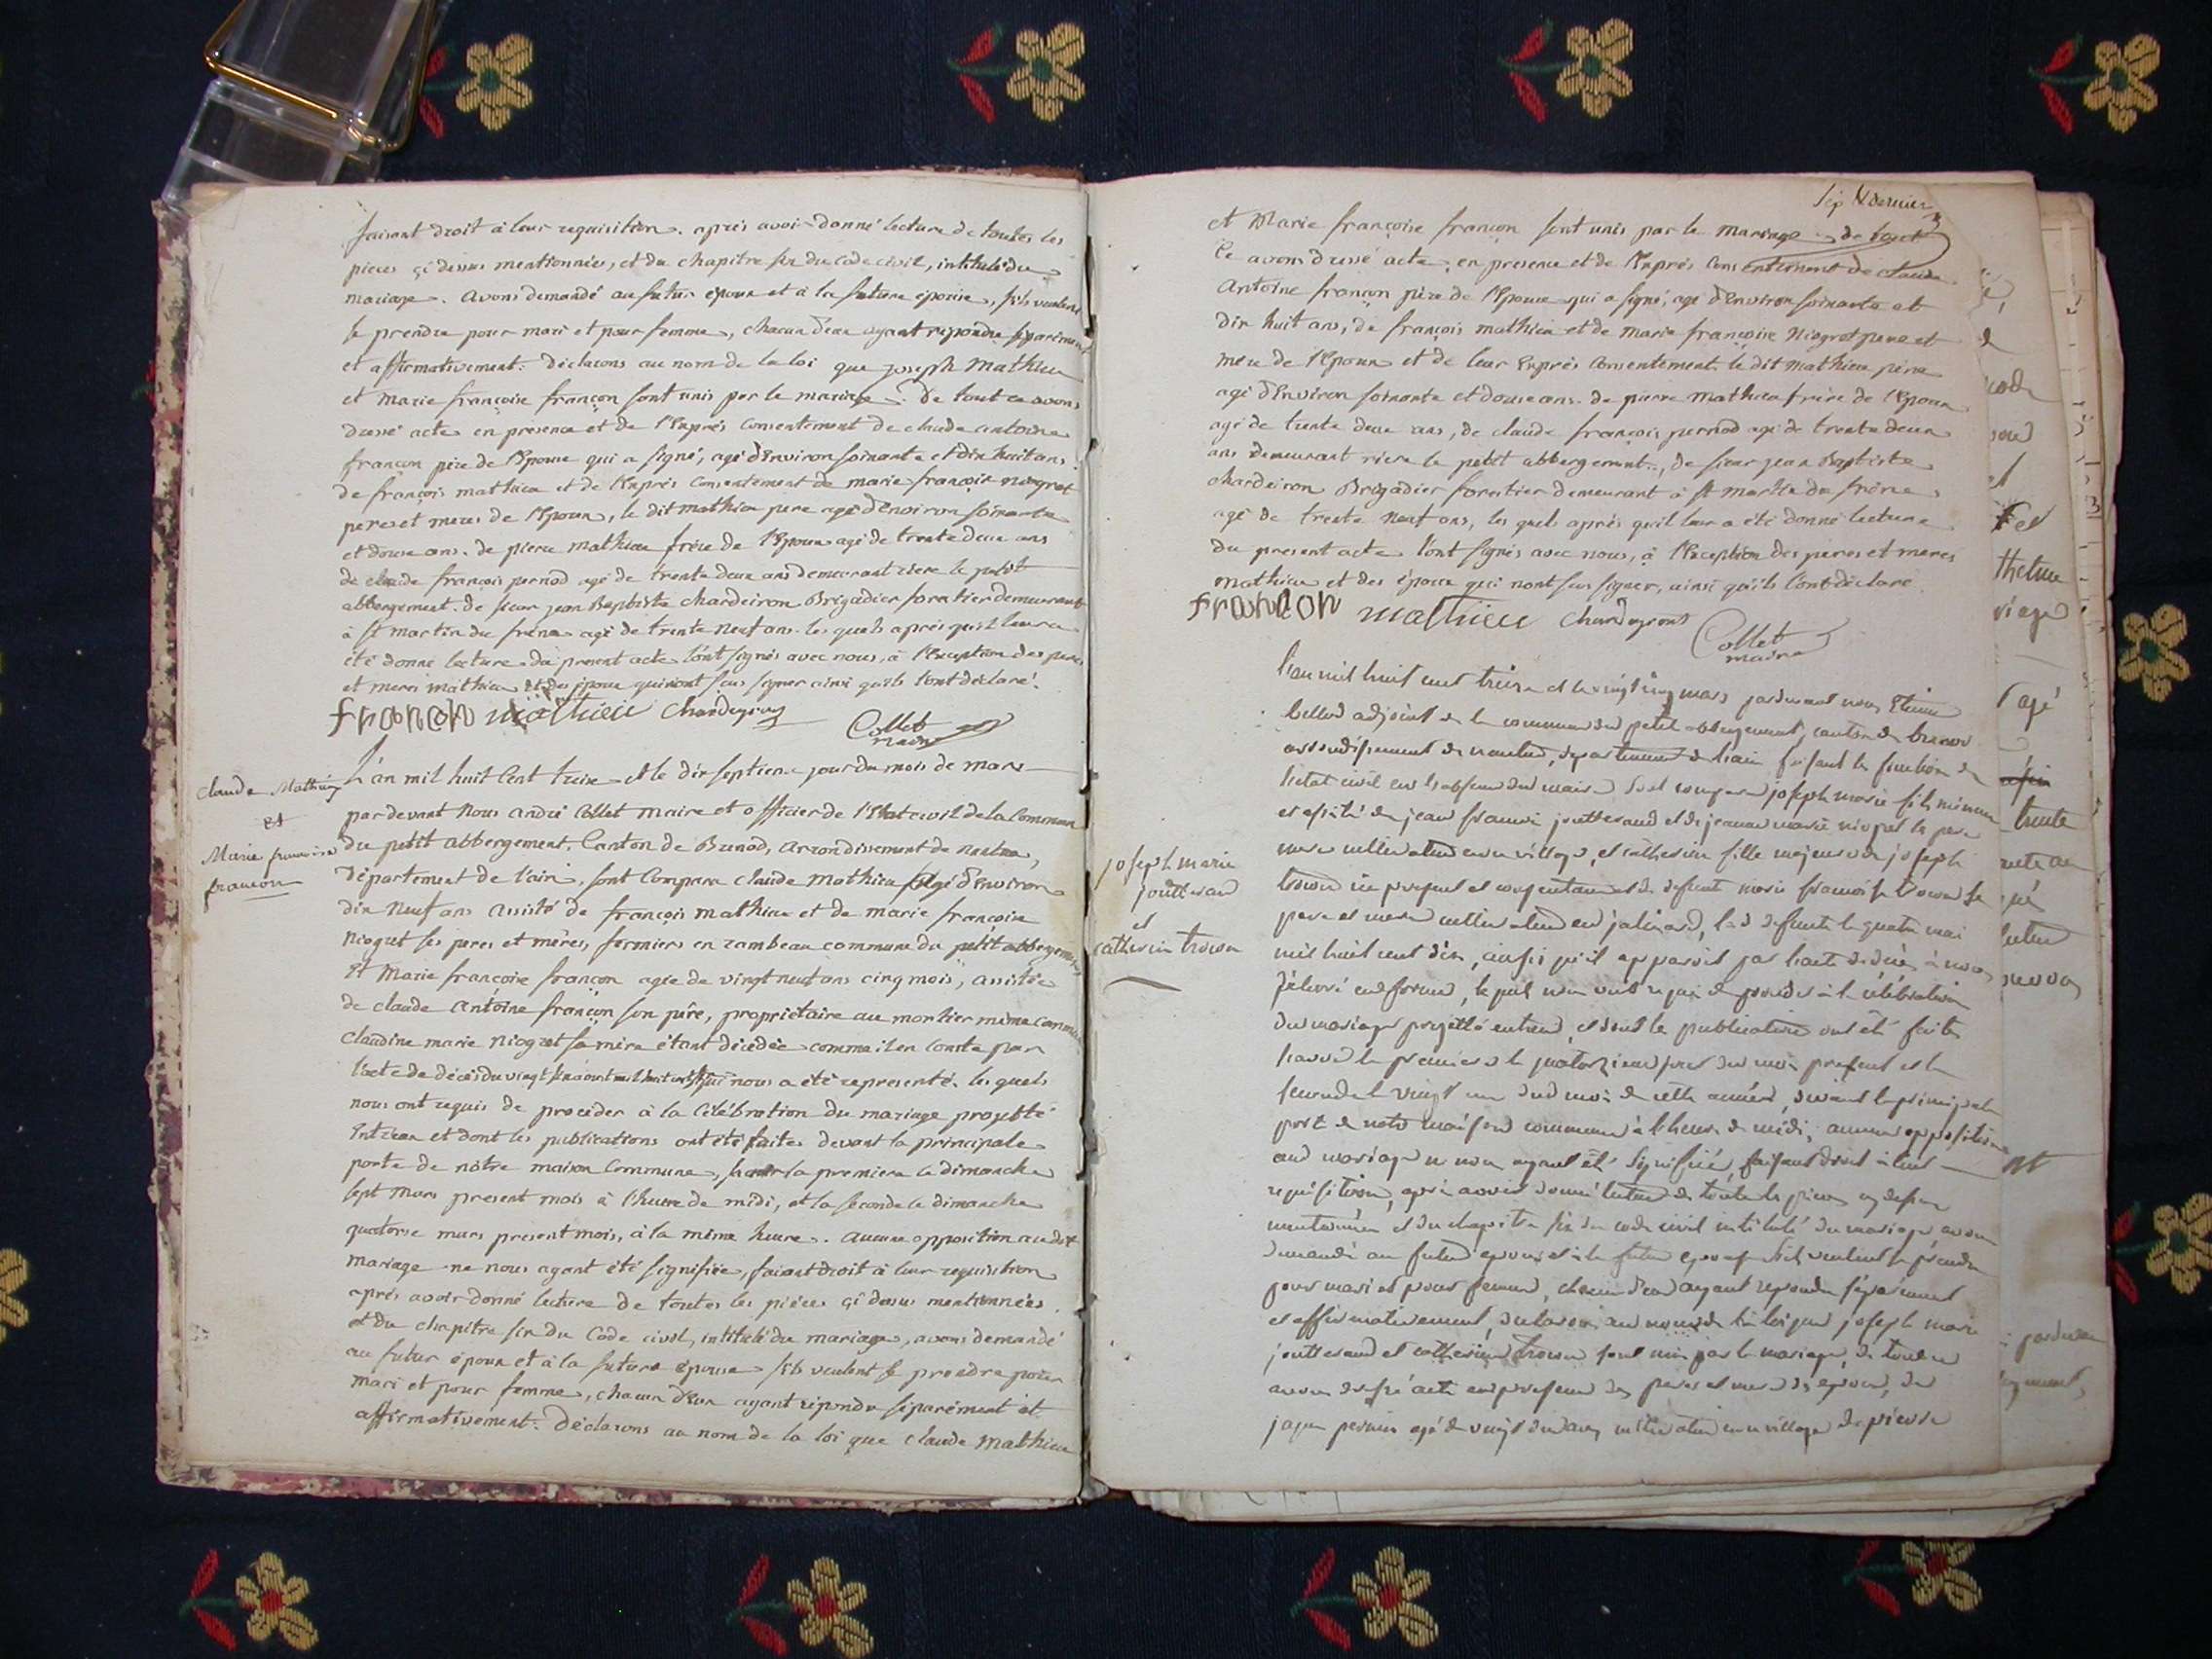 faisant droit à leur requisition. après avoir donné lecture de toutes les
pieces çi dessus mentionnées, et du chapitre six du code civil, intitulé du
mariage. avons demandé au futur époux et à la future épouse, s'ils veulent
se prendre pour mari et pour femme, chacun d'eux ayant repondu séparément
et affirmativement: déclarons au nom de la loi que joseph Mathieu
et marie françoise françon sont unis par le mariage. De tout ce avons
dressé acte en presence et de l'Exprès consentement de claude antoine
françon père de l'Epouse qui a signé, agé d'Environ soixante et dix huit ans.
de françois mathieu et de l'Exprès consentement de marie françoise niogret
peres et meres de l'Epoux, le dit mathieu pere agé d'Environ soixante
et douse ans. de pierre mathieu frère de l'Epoux agé de trente deux ans
de claude françois pernod agé de trente deux ans demeurant riere le petit
abbergement. de sieur jean Baptiste chardeiron Brigadier forestier demeurant
à st martin du frêne agé de trente neuf ans. les quels après qu'il leur a
été donné lecture du présent acte l'ont signés avec nous, à l'Exception des peres
et meres mathieu et des époux qui n'ont sus signer ainsi qu'ils l'ont déclaré.
françon mathieu chardeyron
Collet
maire
claude Mathieu
et
Marie françoise
françon
L'an mil huit Cent treize et le dix septieme jour du mois de mars
pardevant Nous andré Collet maire et officier de l'Etat civil de la Commune
du petit abbergement, Canton de Brenod, arrondisement de nantua,
département de l'ain, sont Comparu claude Mathieu agé d'Environ
dix Neuf ans assisté de françois mathieu et de marie françoise
Niogret ses peres et mères, fermiers en zambeau commune du petit abbergement
Et Marie françoise françon agée de vingt neuf ans cinq mois, assistée
de claude Antoine françon son père, propriétaire au mortier même Commune
claudine marie niogret sa mère étant décédée comme il en Conste par
l'acte de décès du vingt six aout mil huit cent sept qui nous a été representé. les quels
nous ont requis de proceder à la Célébration du mariage projetté
Entreux et dont les publications ont été faites devant la principale
porte de nôtre maison Commune, savoir la premiere le dimanche
sept mars present mois à l'heure de midi, et la seconde le dimanche
quatorse mars present mois, à la même heure. Aucune opposition au dit
mariage ne nous ayant été signifiée, faisant droit à leur requisition
après avoir donné lecture de toutes les pièces çi dessus mentionnées.
et du chapitre six du Code civil, intitulé du mariage, avons demandé
au futur époux et à la future épouse s'ils veulent se prendre pour
mari et pour femme, chacun d'Eux ayant répondu séparément et
affirmativement: Déclarons au nom de la loi que claude mathieu
et Marie françoise françon sont unis par le mariage de tout
Ce avons dressé acte, en presence et de l'Exprès Consentement de claude
Antoine françon père de l'Epouse qui a signé, agé d'Environ soixante et
dix huit ans, de françois mathieu et de marie françoise Niogret pere et
mere de l'Epoux et de leur Exprès Consentement. le dit mathieu père
agé d'Environ soixante et douse ans. de pierre mathieu frère de l'Epoux
agé de trente deux ans, de claude françois pernod agé de trente deux
ans demeurant riere le petit abbergement, de sieur jean Baptiste
chardeiron Brigadier forestier demeurant à st martin du frêne
agé de trente neuf ans, les quels après qu'il leur a été donné lecture
du present acte l'ont signés avec nous, à l'Exception des peres et meres
mathieu et des époux qui n'ont sus signer, ainsi qu'ils l'ont déclaré
françon mathieu chardeyron
Collet
maire
joseph marie
joutterand
et
catherine
l'an mil huit cent treize et le vingt cinq mars pardevant nous Etienne
adjoint de la commune du petit abbergement, canton de brenod
arrondissement de nantua, departement de l'ain faisant la fonction de
l'etat civil en l'absence du maire sont comparu joseph marie fils mineur
et assisté de jean françois joutterand et de jeanne marie niogret ses pere
mere cultivateur en ce village, et catherine fille majeure de joseph
ici present et consentant et de defunte marie françoise
pere et mere cultivateur en jalinard, la d defunte le quatre mai
mil huit cent dix, ainsi qu'il apparoit par l'acte de décès à nous
délivré en forme, lequel nous ont requis de proceder à la célébration
du mariage projetté entreux, et dont les publications ont été faites
savoir la premiere le quatorzieme jour du mois present et la
seconde le vingt un dud mois de cette année, devant la principale
porte de notre maison commune à l'heure de midi, aucune opposition
aud mariage ne nous ayant été signifiée, faisant droit à leur
requisition, après avoir donné lecture de toutes les pieces cy dessus
mentionnées et du chapitre six du code civil intitulé du mariage avons
demandé au futur epoux et à la future epouse s'ils veulent se prendre
pour mari et pour femme, chacun d'eux ayant repondu séparément
et affirmativement, declarons au nom de la loi que joseph marie
joutterand et catherine sont unis par le mariage, de tout ce
avons dressé acte en presence des peres et mere des epoux, de
agé de vingt deux ans cultivateur en ce village de pierre